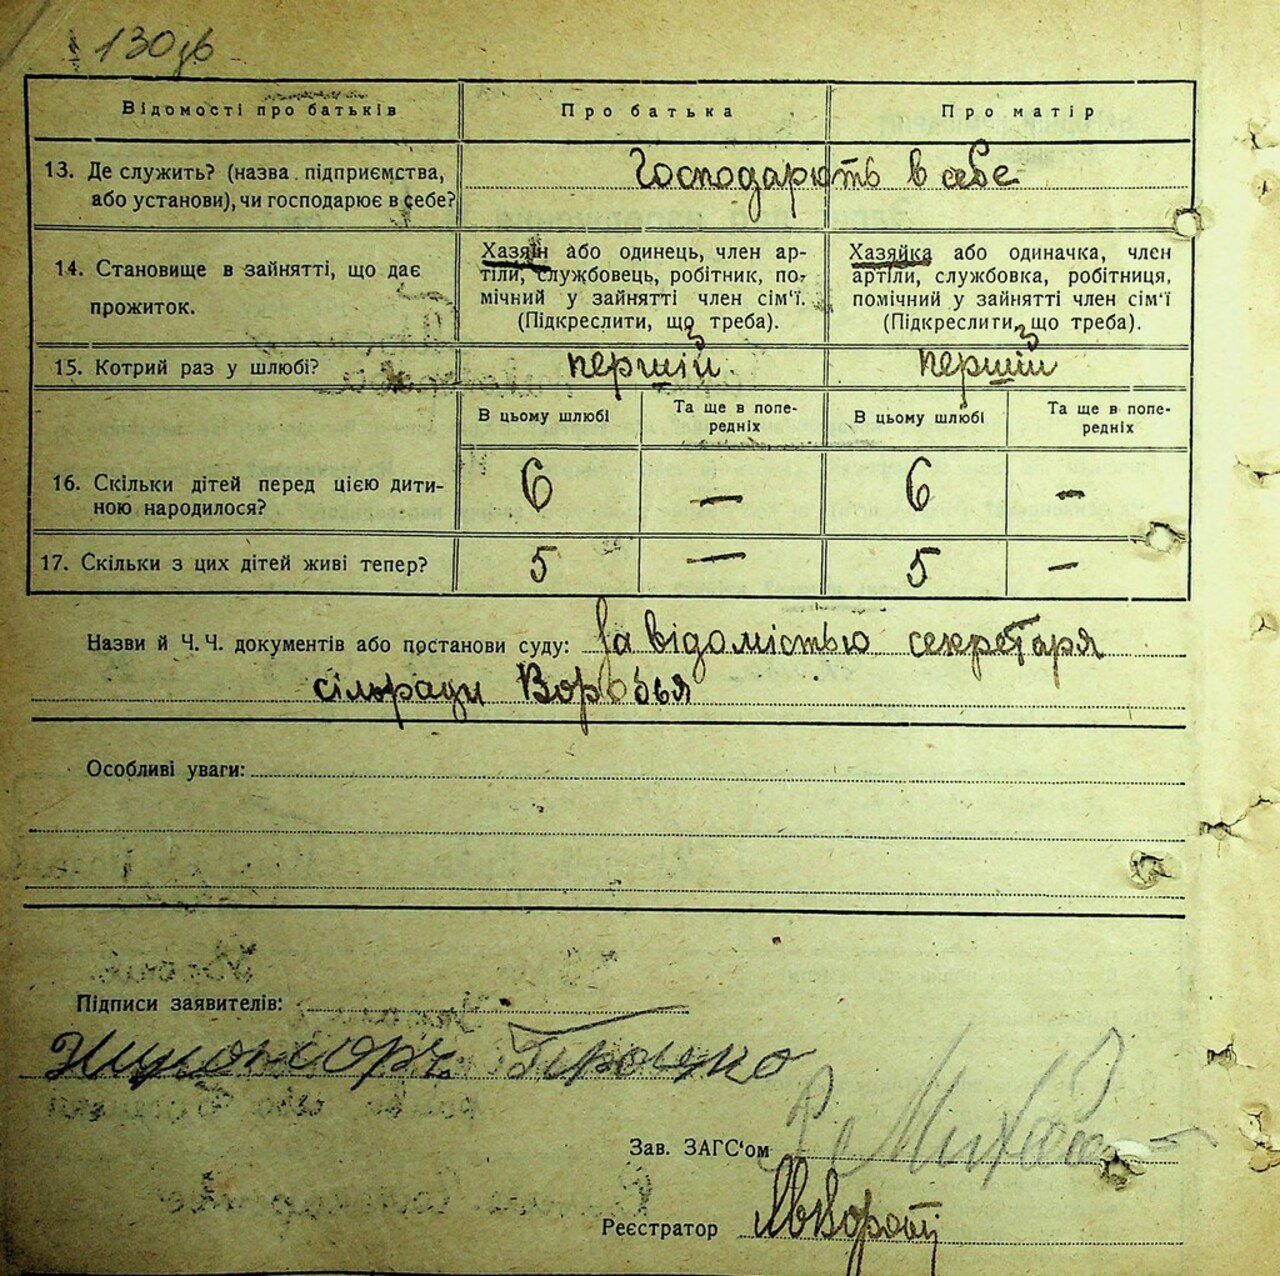 130зв
Відомості про батьків Про батька Про матір
13. Де служить? (назва підприємства, або установи), чи господарює в себе?
Господарють в себе
14. Становище в зайнятті, що дає прожиток.
Хазяїн або одинець, член ар-
тіли, службовець, робітник, по-
мічний у зайнятті член сім'ї.
(Підкреслити, що треба).
Хазяйка або одиначка, член
артіли, службовка, робітниця,
помічний у зайнятті член сім'ї
(Підкреслити, що треба).
15. Котрий раз у шлюбі? перший. перший
В цьому шлюбі Та ще в попе-
редніх В цьому шлюбі Та ще в попе-
редніх
16. Скільки дітей перед цією дити-
ною народилося? 6 — 6 –
17. Скільки з цих дітей живі тепер? 5 — 5 –
Назви й Ч.Ч. документів або постанови суду: За відомістью секретаря
сільради Ворозья
Особливі уваги:
Підписи заявителів:
Зав. ЗАГС'ом
Реєстратор